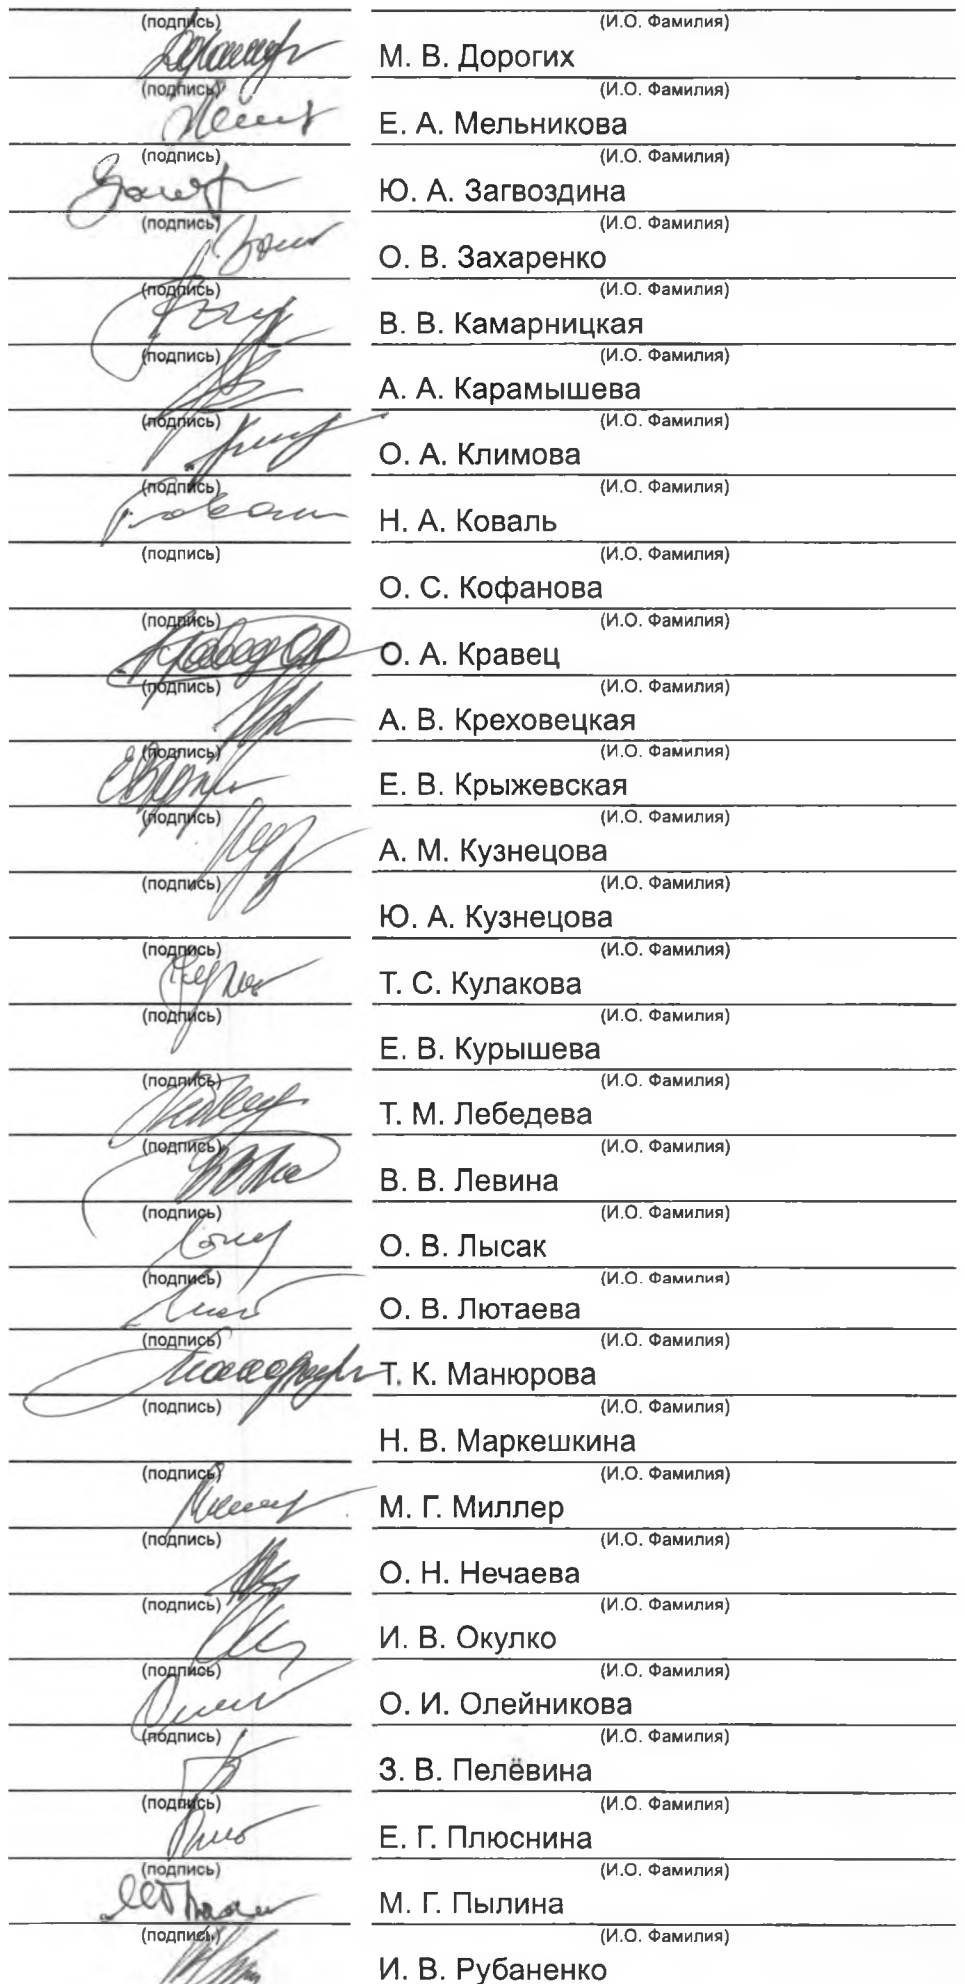 (подпись) (И.О. Фамилия)
М. В. Дорогих
(подпись) (И.О. Фамилия)
Е. А. Мельникова
(подпись) (И.О. Фамилия)
Ю. А. Загвоздина
(подпись) (И.О. Фамилия)
О. В. Захаренко
(подпись) (И.О. Фамилия)
В. В. Камарницкая
(подпись) (И.О. Фамилия)
А. А. Карамышева
(подпись) (И.О. Фамилия)
О. А. Климова
(подпись) (И.О. Фамилия)
Н. А. Коваль
(подпись) (И.О. Фамилия)
О. С. Кофанова
(подпись) (И.О. Фамилия)
О. А. Кравец
(подпись) (И.О. Фамилия)
А. В. Креховецкая
(подпись) (И.О. Фамилия)
Е. В. Крыжевская
(подпись) (И.О. Фамилия)
А. М. Кузнецова
(подпись) (И.О. Фамилия)
Ю. А. Кузнецова
(подпись) (И.О. Фамилия)
Т. С. Кулакова
(подпись) (И.О. Фамилия)
Е. В. Курышева
(подпись) (И.О. Фамилия)
Т. М. Лебедева
(подпись) (И.О. Фамилия)
В. В. Левина
(подпись) (И.О. Фамилия)
О. В. Лысак
(подпись) (И.О. Фамилия)
О. В. Лютаева
(подпись) (И.О. Фамилия)
Т. К. Манюрова
(подпись) (И.О. Фамилия)
Н. В. Маркешкина
(подпись) (И.О. Фамилия)
М. Г. Миллер
(подпись) (И.О. Фамилия)
О. Н. Нечаева
(подпись) (И.О. Фамилия)
И. В. Окулко
(подпись) (И.О. Фамилия)
О. И. Олейникова
(подпись) (И.О. Фамилия)
З. В. Пелёвина
(подпись) (И.О. Фамилия)
Е. Г. Плюснина
(подпись) (И.О. Фамилия)
М. Г. Пылина
(подпись) (И.О. Фамилия)
И. В. Рубаненко